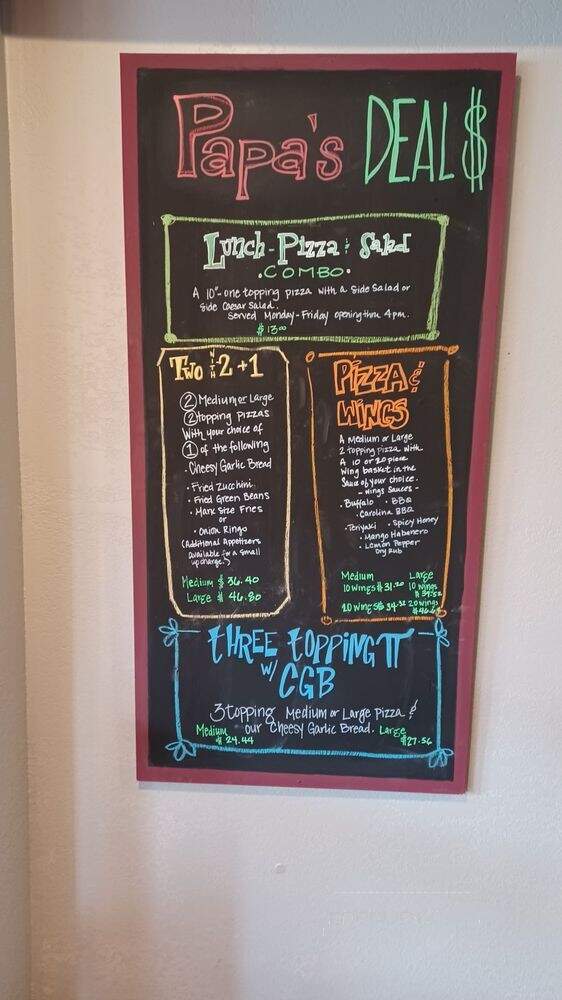 Papa's DEAL$
Lunch-Pizza & Salad
• COMBO •
A 10"- one topping pizza with a side salad or
side Caesar salad.
Served Monday-Friday opening thru 4pm.
$13.00
Two WITH 2+1
2 Medium or Large
2 topping pizzas
With your choice of
1 of the following
• Cheesy Garlic Bread
• Fried Zucchini
• Fried Green Beans
• Manx Size Fries
or
• Onion Rings
(Additional Appetizers
available for a small
upcharge.)
Medium $36.40
Large $46.80
PIZZA &
WINGS
A Medium or Large
2 topping pizza with
A 10 or 20 piece
Wing basket in the
Sauce of your choice.
- Wings Sauces -
• Buffalo • BBQ
• Carolina BBQ
• Teriyaki • Spicy Honey
• Mango Habanero
• Lemon Pepper
Dry Rub
Medium Large
10 wings $31.20 10 wings
20 wings 20 wings
THREE TOPPING π
w/ CGB
3 topping Medium or Large Pizza &
our Cheesy Garlic Bread.
Medium $24.44 Large $27.56